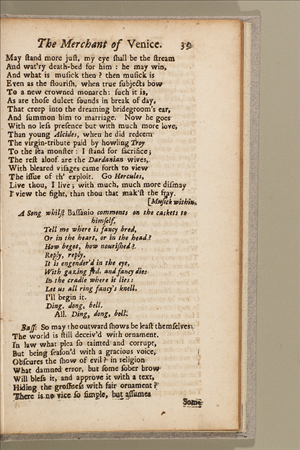 The Merchant of Venice. 39
May ſtand more juſt, my eye ſhall be the ſtream
And wat'ry death-bed for him: he may win,
And what is muſick then? then muſick is
Even as the flouriſh, when true ſubjects bow
To a new crowned monarch: ſuch it is,
As are thoſe dulcet ſounds in break of day,
That creep into the dreaming bridegroom's ear,
And ſummon him to marriage. Now he goes
With no leſs preſence but with much more love,
Than young Alcides, when he did redeem
The virgin-tribute paid by howling Troy
To the ſea monſter: I ſtand for ſacrifice;
The reſt aloof are the Dardanian wives,
With bleared viſages came forth to view
The iſſue of th' exploit. Go Hercules,
Live thou, I live; with much, much more diſmay
I view the fight, than thou that mak'ſt the fray.
[Muſick within.
A Song whilſt Baſſanio comments on the caskets to
himſelf,
Tell me where is fancy bred,
Or in the heart, or in the head?
How begot, how nouriſhed?
Reply, reply.
It is engender'd in the eye,
With gazing fed, and fancy dies
In the cradle where it lies:
Let us all ring fancy's knell.
I'll begin it.
Ding, dong, bell.
All. Ding, dong, bell.
Baſſ: So may the outward ſhows be leaſt themſelves:
The world is ſtill deceiv'd with ornament.
In law what plea ſo tainted and corrupt,
But being ſeaſon'd with a gracious voice,
Obſcures the ſhow of evil? in religion
What damned error, but ſome ſober brow
Will bleſs it, and approve it with a text,
Hiding the groſſneſs with fair ornament?
There is no vice ſo ſimple, but aſſumes
Some